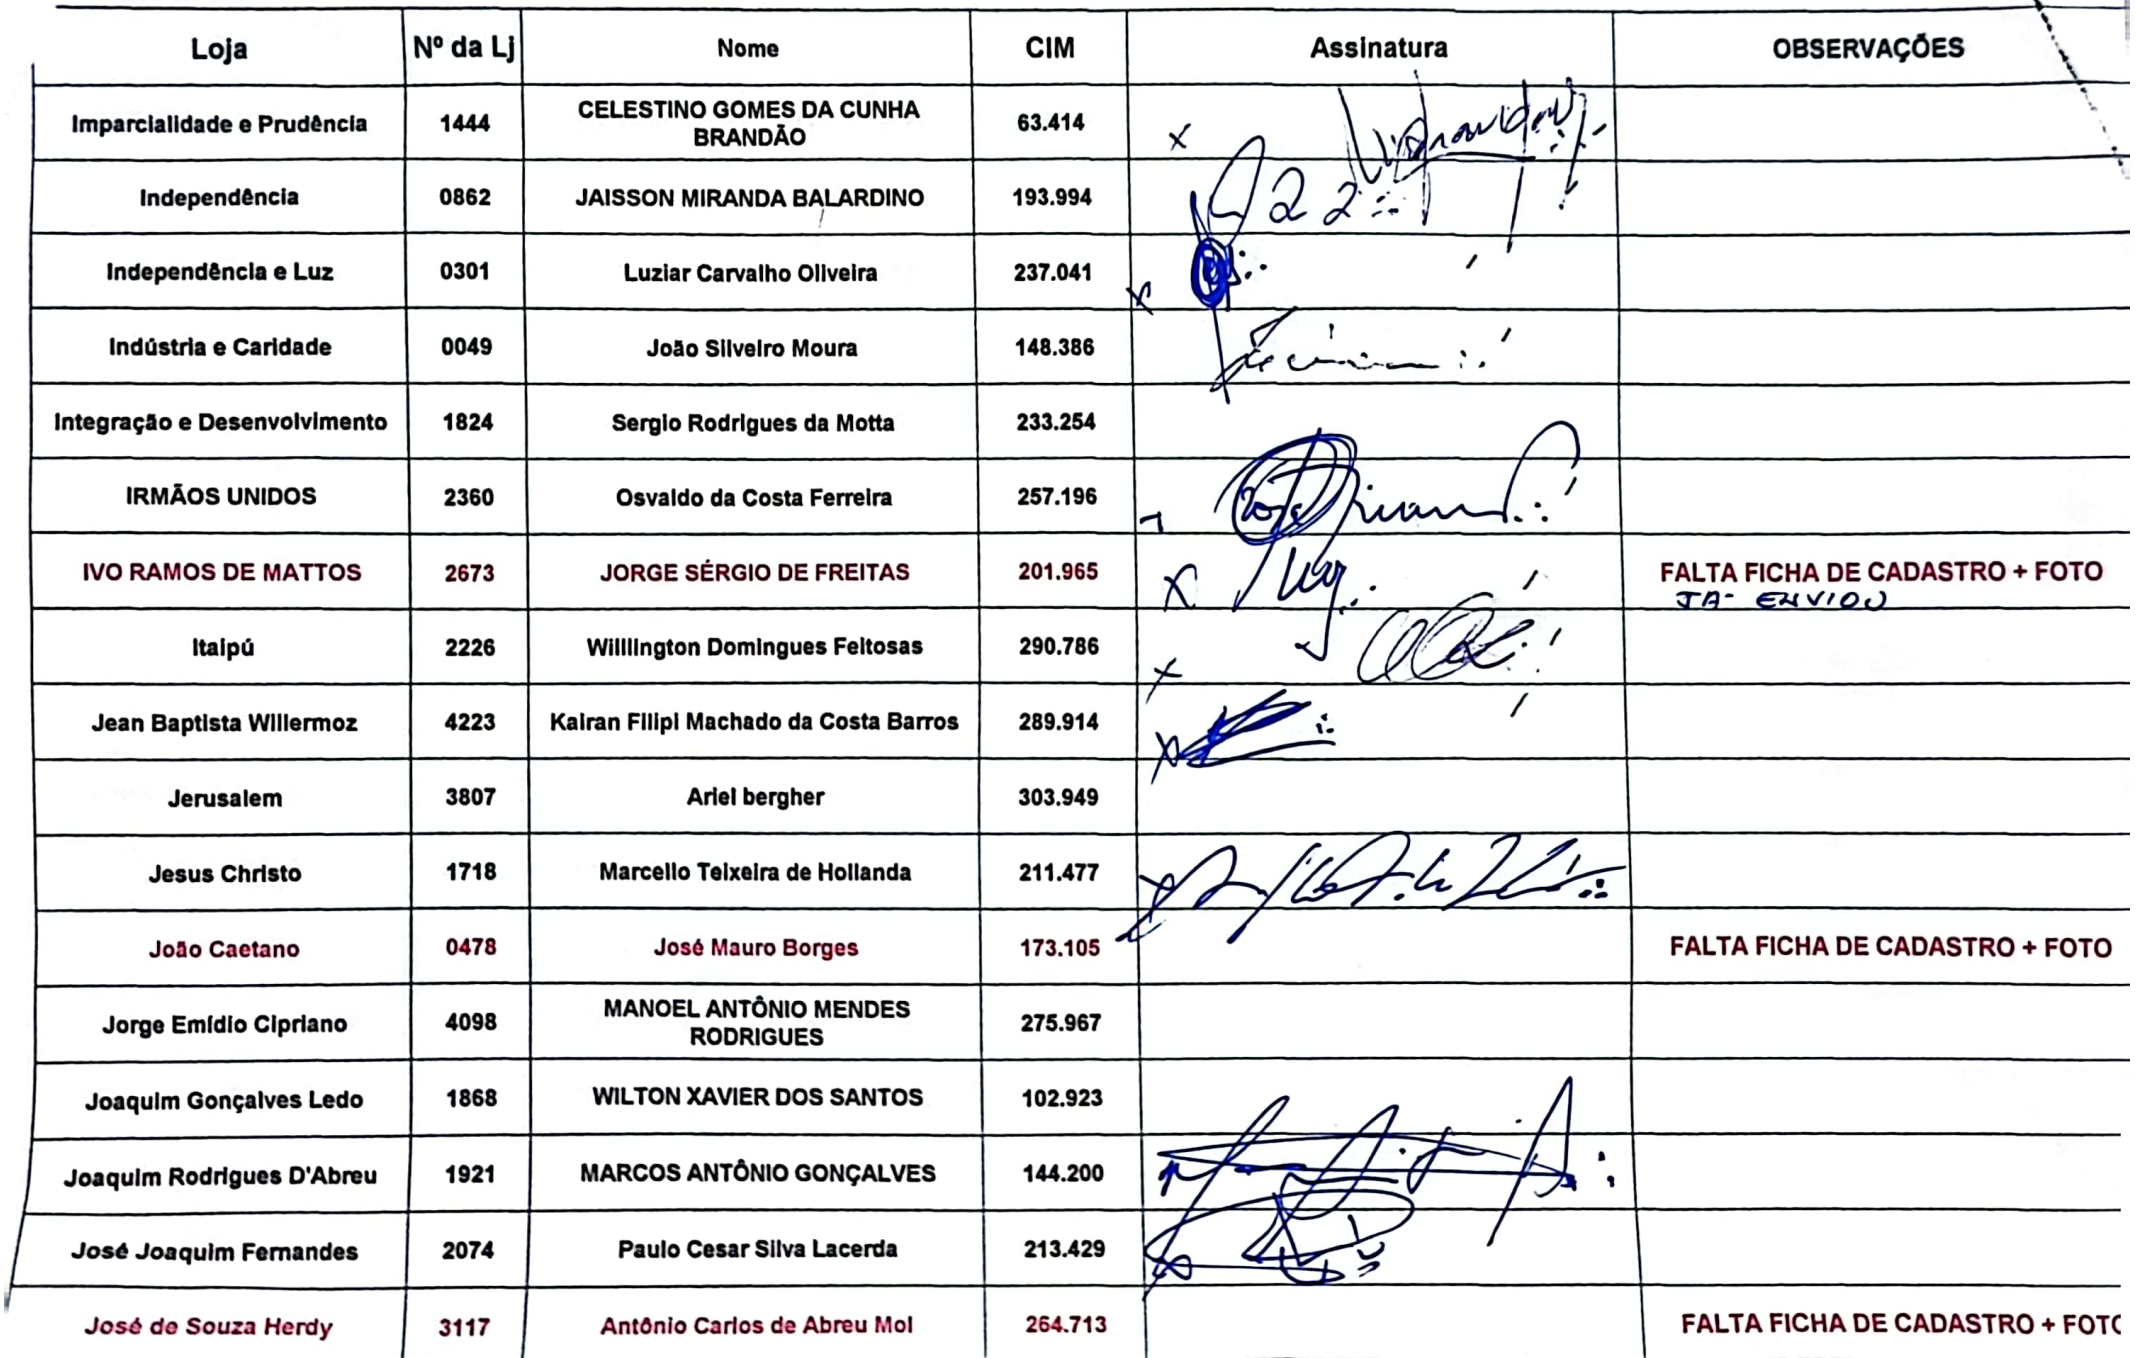 Loja Nº da Lj Nome CIM Assinatura OBSERVAÇÕES
Imparcialidade e Prudência 1444 CELESTINO GOMES DA CUNHA BRANDÃO 63.414
Independência 0862 JAISSON MIRANDA BALARDINO 193.994
Independência e Luz 0301 Luziar Carvalho Oliveira 237.041
Indústria e Caridade 0049 João Silveiro Moura 148.386
Integração e Desenvolvimento 1824 Sergio Rodrigues da Motta 233.254
IRMÃOS UNIDOS 2360 Osvaldo da Costa Ferreira 257.196
IVO RAMOS DE MATTOS 2673 JORGE SÉRGIO DE FREITAS 201.965 FALTA FICHA DE CADASTRO + FOTO
JA- ENVIOU
Itaipú 2226 Willlington Domingues Feitosas 290.786
Jean Baptista Willermoz 4223 Kairan Filipi Machado da Costa Barros 289.914
Jerusalem 3807 Ariel bergher 303.949
Jesus Christo 1718 Marcello Teixeira de Hollanda 211.477
João Caetano 0478 José Mauro Borges 173.105 FALTA FICHA DE CADASTRO + FOTO
Jorge Emídio Cipriano 4098 MANOEL ANTÔNIO MENDES RODRIGUES 275.967
Joaquim Gonçalves Ledo 1868 WILTON XAVIER DOS SANTOS 102.923
Joaquim Rodrigues D'Abreu 1921 MARCOS ANTÔNIO GONÇALVES 144.200
José Joaquim Fernandes 2074 Paulo Cesar Silva Lacerda 213.429
José de Souza Herdy 3117 Antônio Carlos de Abreu Mol 264.713 FALTA FICHA DE CADASTRO + FOTO